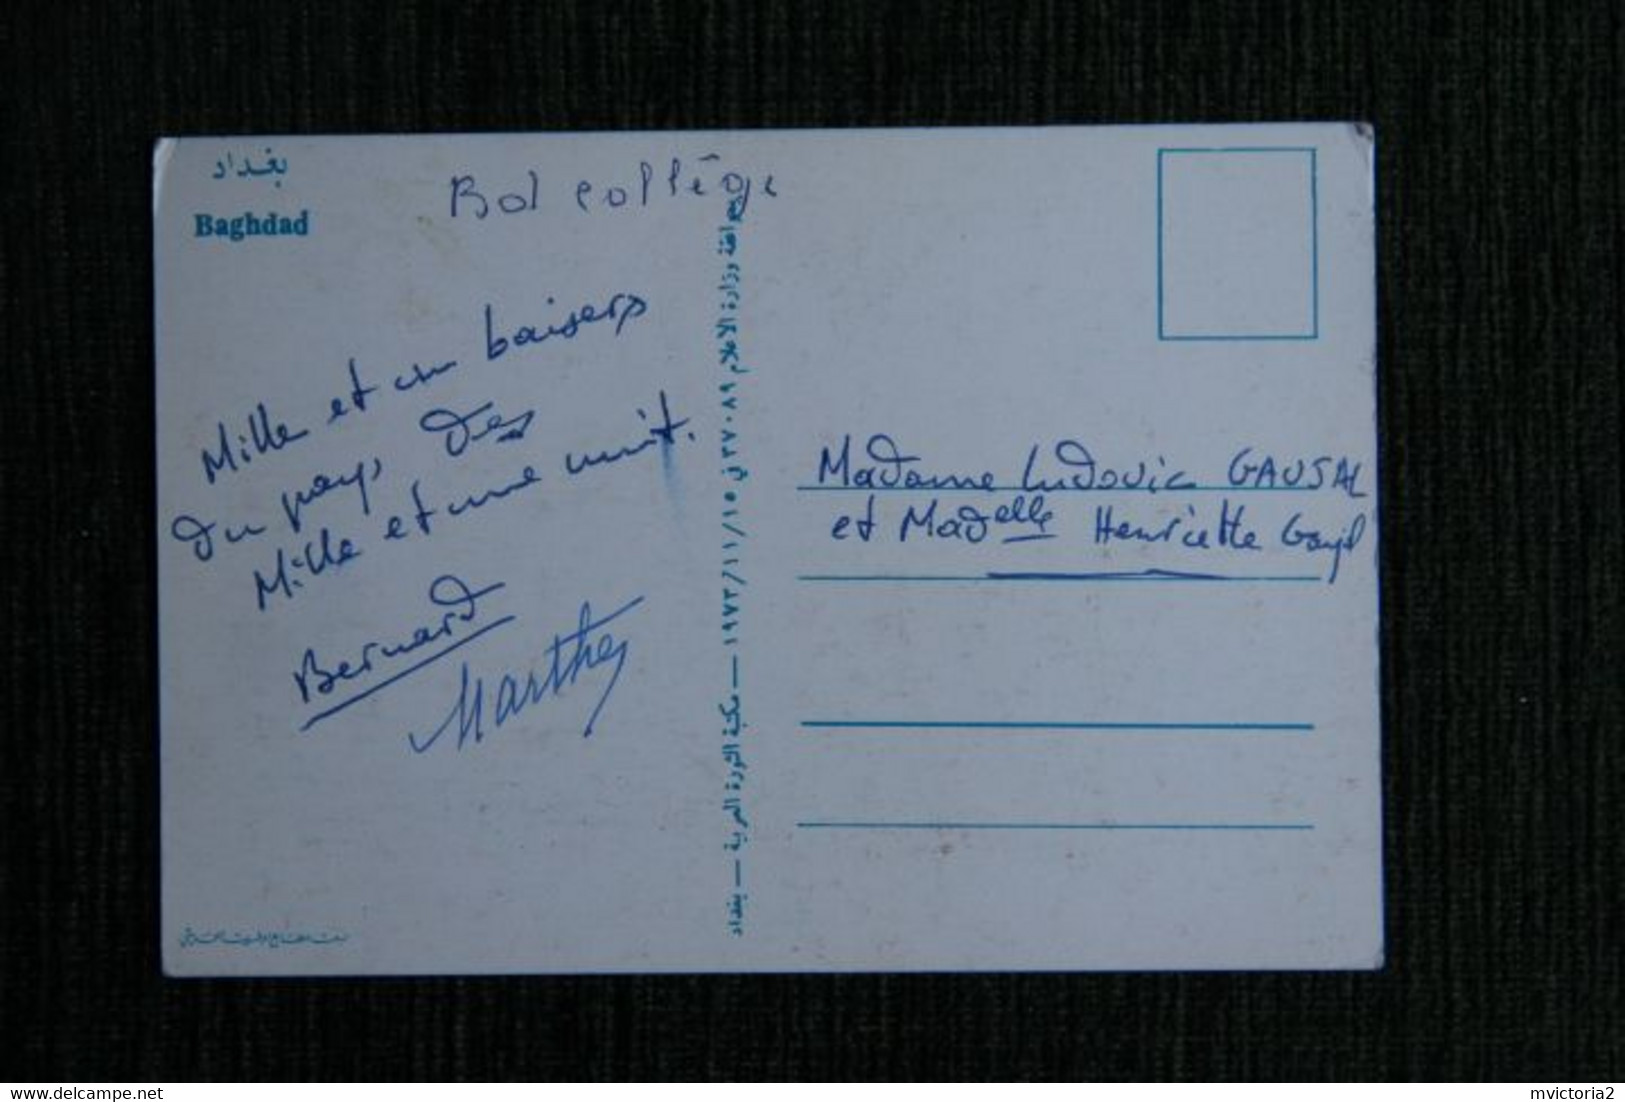 بغداد
Baghdad
Bol collège
Mille et un baisers
du pays des
Mille et une nuit.
Bernard
Marthe
بموافقة وزارة الاعلام ٣٧٠٨٩ في ١٩٧٣/١١/١٥ — مكتبة الثورة العربية — بغداد
Madame Ludovic GAUSAL
et Madelle Henriette
www.delcampe.net
mvictoria2